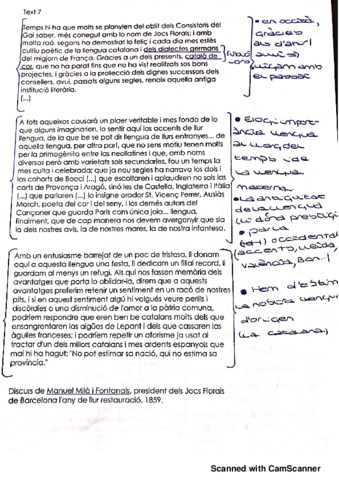 Text 7
Temps hi ha que molts se planyien del oblit dels Consistoris del
Gai saber, més conegut amb lo nom de Jocs Florals; i amb
molta raó, segons ha demostrat lo feliç i cada dia més estès
cultiu poètic de la llengua catalana i dels dialectes germans
del migjorn de França. Gràcies a un dels presents, català de
cor, que no ha parat fins que no ha vist realitzats sos bons
projectes, i gràcies a la protecció dels dignes successors dels
consellers, avui, passats alguns segles, renaix aquella antiga
institució literària.
[...]
A tots aqueixos causarà un plaer veritable i mes fondo de lo
que alguns imaginarien, lo sentir aquí los accents de llur
llengua, de la que be se pot dir llengua de llurs entranyes... de
aquella llengua, per altra part, que no sens motiu tenen molts
per la primogènita entre les neollatines i que, amb noms
diversos però amb varietats sols secundàries, fou un temps la
mes culta i celebrada; que ja nou segles ha narrava los dols i
les cohorts de Boeci [...] que escoltaren i aplaudiren no sols les
corts de Provença i Aragó, sinó les de Castella, Inglaterra i Itàlia
[...] que parlaren [...] lo insigne orador St. Vicenç Ferrer, Ausiàs
March, poeta del cor i del seny, i los demés autors del
Cançoner que guarda París com única joia... llengua,
finalment, que de cap manera nos devem avergonyir que sia
la dels nostres avis, la de nostres mares, la de nostra infantesa.
Amb un entusiasme barrejat de un poc de tristesa, li donam
aquí a aquesta llengua una festa, li dedicam un filial record, li
guardam al menys un refugi. Als qui nos fassen memòria dels
avantatges que porta lo oblidar-la, direm que a aquests
avantatges preferim retenir un sentiment en un racó de nostres
pits, i si en aquest sentiment algú hi volgués veure perills i
discòrdies o una disminució de l'amor a la pàtria comuna,
podríem respondre que eren ben be catalans molts dels que
ensangrentaren les aigües de Lepant i dels que cassaren les
àguiles franceses; i podríem repetir un aforisme ja usat al
tractar d'un dels millors catalans i mes ardents espanyols que
mai hi ha hagut: "No pot estimar sa nació, qui no estima sa
província."
Discurs de Manuel Milà i Fontanals, president dels Jocs Florals
de Barcelona l'any de llur restauració, 1859.
• en occità,
gràcies
el passat
• Elogi impor-
tància llengua
al llarg del
temps i de
la llengua
materna.
• La antiguitat
de la llengua
li dóna prestigi
• parla
occidental
València, Bar..)
• Hem d'estim
la nostra llengua
d'origen
(la catalana)
Scanned with CamScanner